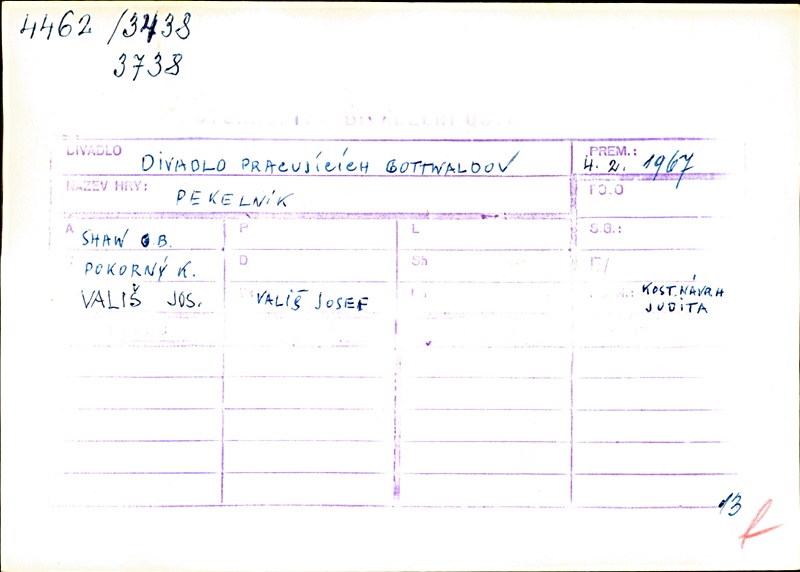 4462 /3438
3738
DIVADLO DIVADLO PRACUJÍCÍCH GOTTWALDOV
PREM.: 4. 2. 1967
NÁZEV HRY: PEKELNÍK
A SHAW G.B.
P
L
S.G.:
POKORNÝ K.
D
Sh
VALIŠ JOS.
VALIŠ JOSEF
KOST. NÁVRH
JUDITA
13